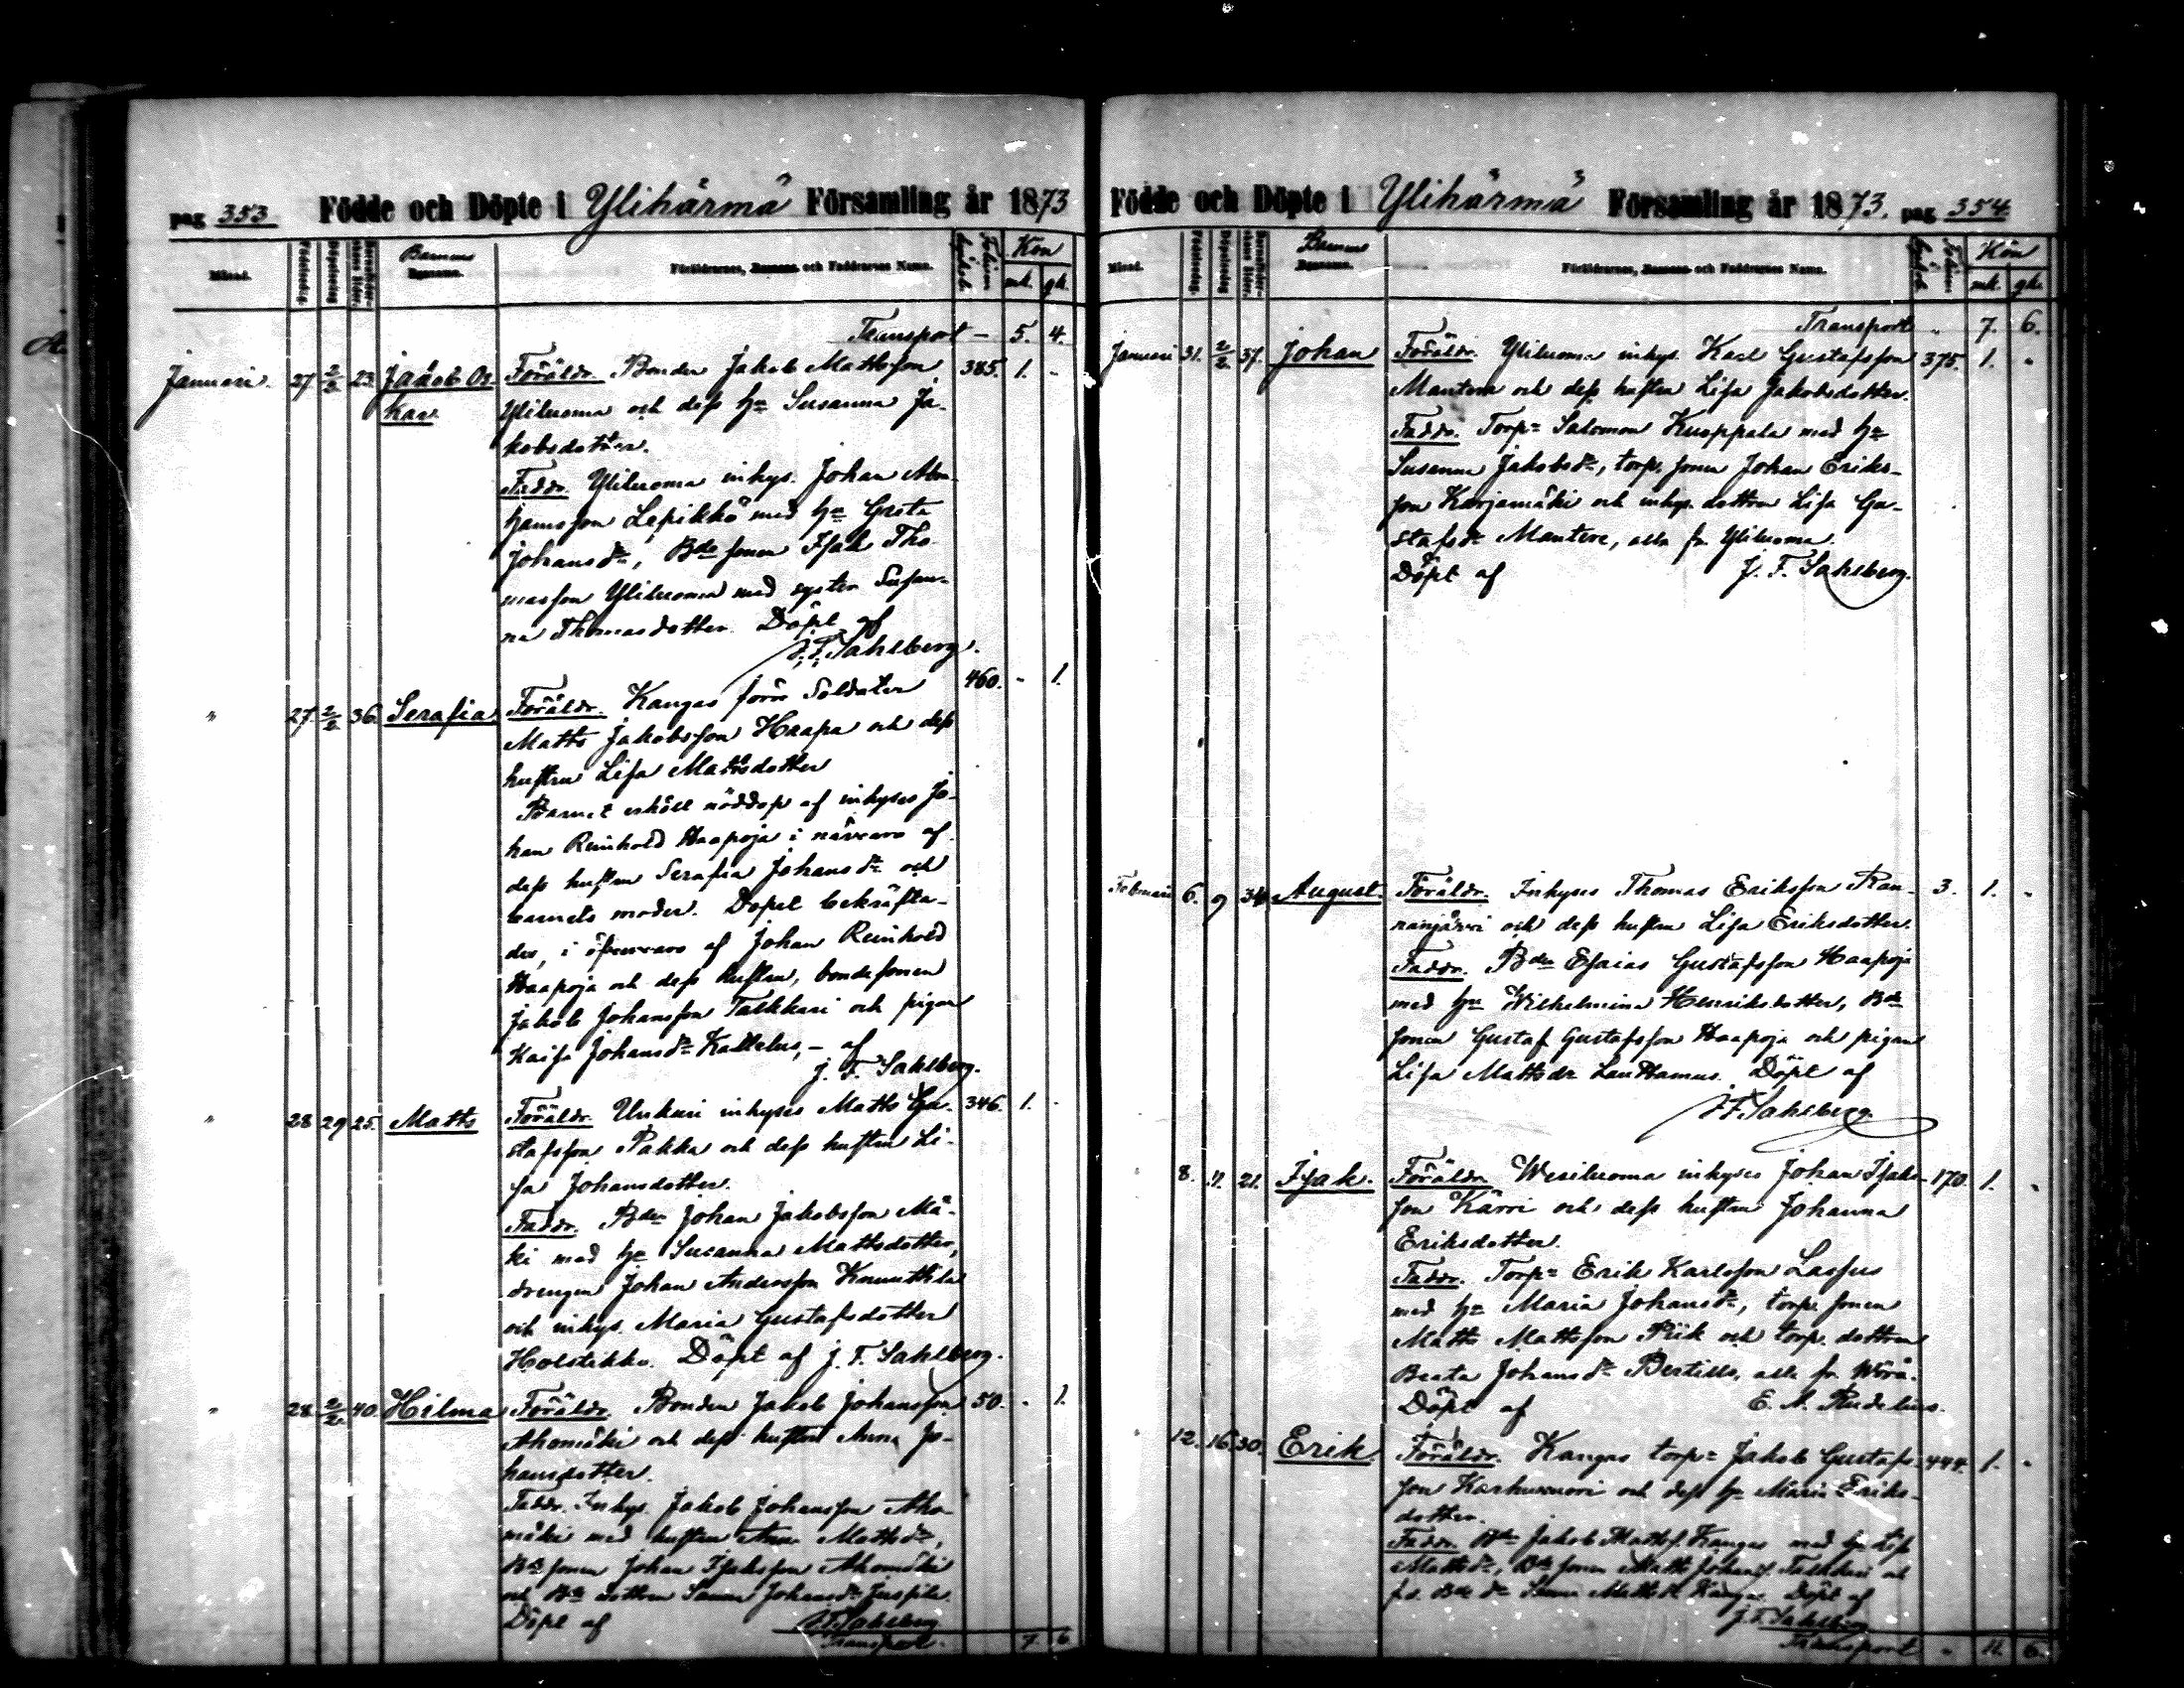 pag 353 Födde och Döpte i Ylihärmä Församling år 1873
Månad. Födelsedag. Döpelsedag Barnaföderskans ålder. Barnens Föräldrarnes, och Faddrarnes Namn. Kön
mk. qk.
Transport — 5. 4.
Januari. 27 2/2 23. Jakob Os Föräldr. Bonden Jakob Mattsson 385. 1. -
kar Yliluoma och dess hu Susanna Ja-
kobsdotter.
Faddr. Yliluoma inhys. Johan Abra-
hamsson Lepikkö med hu Greta
Johansdr, Bde sonen Isak Tho-
masson Yliluoma med syster Susan-
na Thomasdotter. Döpt af
J. F. Sahlberg.
" 27. 2/2 36. Serafia Föräldr. Kangas förre Soldaten 460. - 1.
Matts Jakobsson Haapa och dess
hustru Lisa Mattsdotter
Barnet erhöll nöddop af inhyses Jo-
han Reinhold Haapoja i närvaro af
dess hustru Serafia Johansdr och
barnets moder. Dopet bekräfta-
des, i öfvervaro af Johan Reinhold
Haapoja och dess hustru, bondesonen
Jakob Johansson Talkkari och pigan
Kaisa Johansdr - af
J. F. Sahlberg.
" 28 29 25. Matts Föräldr. Unkuri inhyses Matts Gu- 346. 1. -
stafsson Pakka och dess hustru Li-
sa Johansdotter.
Faddr. Bdn Johan Jakobsson Mä-
ki med hu Susanna Mattsdotter,
drengen Johan Andersson Knuuttila
och inhys. Maria Gustafsdotter
Holstikko. Döpt af J. F. Sahlberg.
" 28 2/2 40. Hilma Föräldr. Bonden Jakob Johansson 50. - 1.
Ahomäki och dess hustru Anna Jo-
hansdotter.
Faddr. Inhys. Jakob Johansson Aho-
mäki med hustru Anna Mattsdr,
Bde sonen Johan Isaksson Ahomäki
och Bde dottren Sanna Johansdr
Döpt af J. F. Sahlberg
Transport. 7 6
Födde och Döpte i Ylihärmä Församling år 1873. pag 354
Månad. Födelsedag. Döpelsedag Barnaföderskans ålder. Barnens Föräldrarnes, och Faddrarnes Namn. Kön
mk. qk.
Transport " 7. 6.
Januari 31. 2/2 37. Johan Föräldr. Yliluoma inhys. Karl Gustafsson 375. 1. "
Mantere och dess hustru Lisa Jakobsdotter.
Faddr. Torpr Salomon Kuoppala med hu
Susanna Jakobsdr, torp. sonen Johan Eriks-
son Karjamäki och inhys. dottren Lisa Gu-
stafsdr Mantere, alla fr. Yliluoma.
Döpt af J. F. Sahlberg.
Februari 6. 9 34 August. Föräldr. Inhyses Thomas Eriksson Ran- 3. 1. -
nanjärvi och dess hustru Lisa Eriksdotter.
Faddr. Bdn Esaias Gustafsson Haapoja
med hu Wilhelmina Henriksdotter, Bde
sonen Gustaf Gustafsson Haapoja och pigan
Lisa Mattsdr Lauttamus. Döpt af
J. F. Sahlberg.
8. 9. 21. Isak. Föräldr. Wesiluoma inhyses Johan Isaks- 170. 1. "
son Kärri och dess hustru Johanna
Eriksdotter.
Faddr. Torpr Erik Karlsson Lassus
med hu Maria Johansdr, torp. sonen
Matts Mattsson Piik och torp. dottren
Beata Johansdr Bertills, alla fr. Wörå.
Döpt af E. A. Rudelius.
12. 16. 30. Erik. Föräldr. Kangas torpr Jakob Gustafs- 444. 1. "
son Karhuvuori och dess hu Maria Eriks-
dotter.
Faddr. Bdn Jakob Mattss. Kangas med hu Lisa
Mattsdr, Bde sonen Matts Johanss. Talkkari och
Bde dr Sanna Mattsdr Kangas Döpt af
J. F. Sahlberg
Transport " 11. 6.